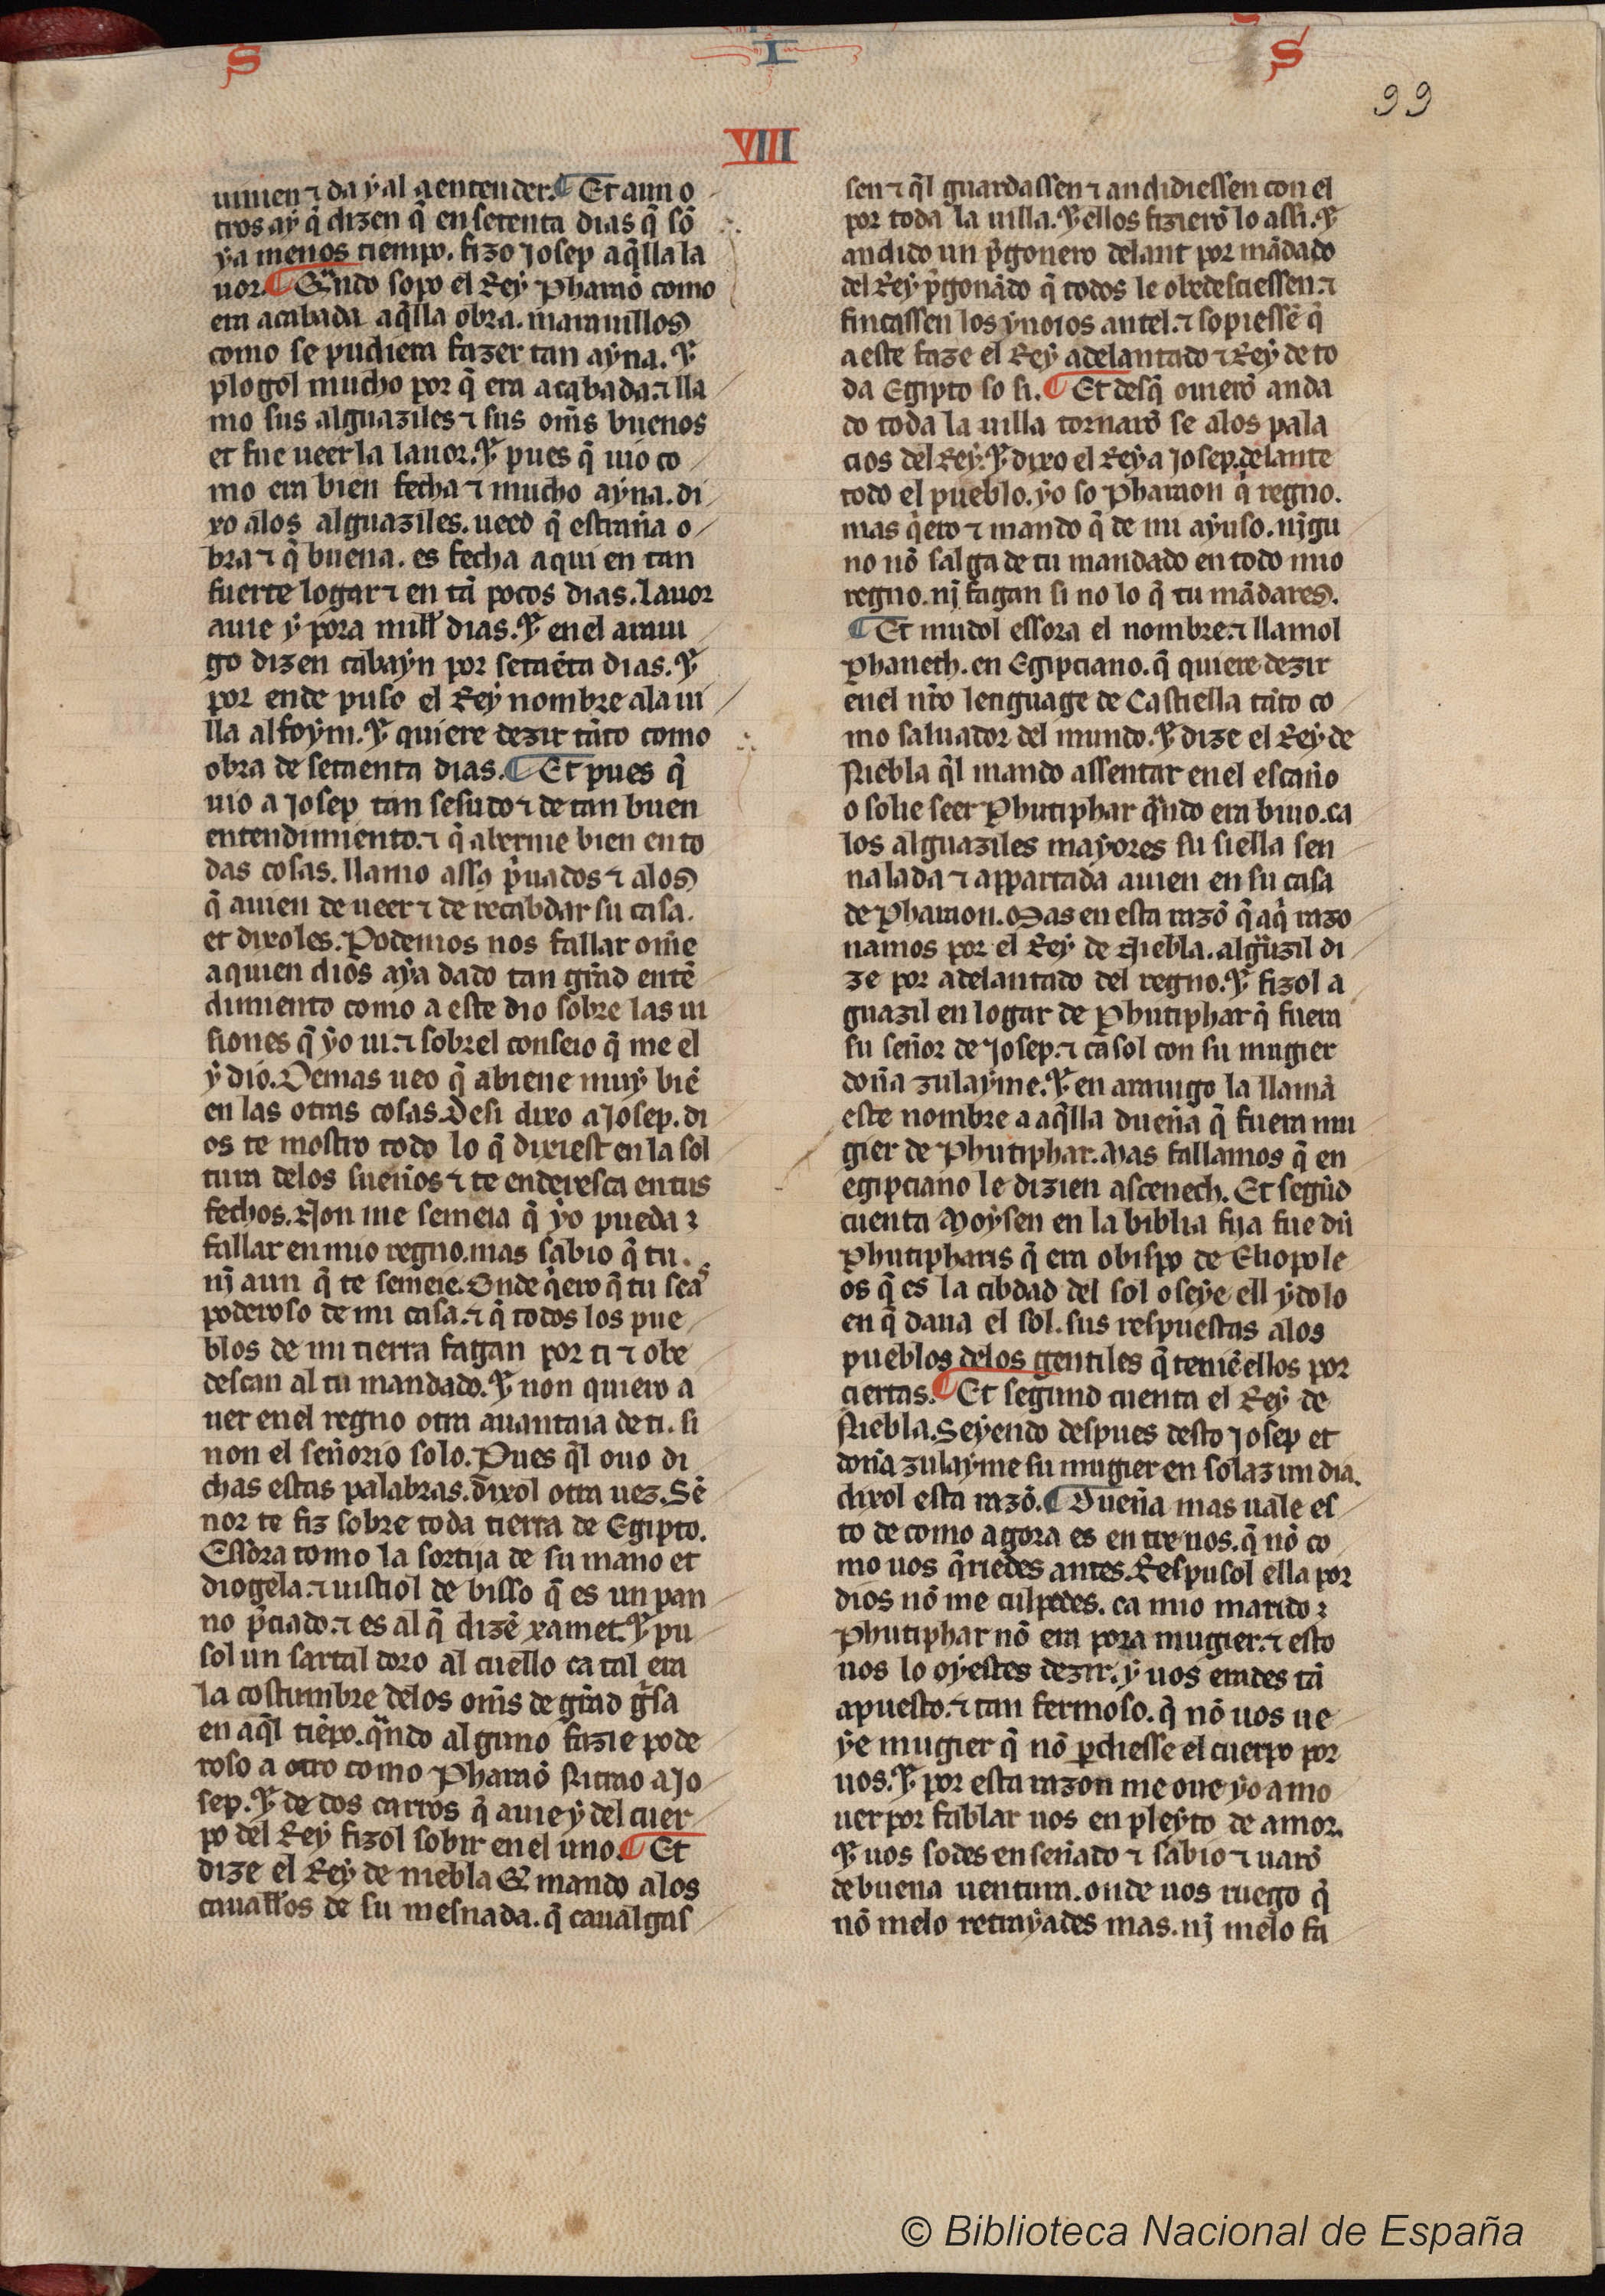 S I S
99
VIII
uinien ⁊ da ẏ al a entender. ¶ Et aun o
tros aẏ q̃ dizen q̃ en setenta dias q̃ sõ
ẏa menos tiempo. fizo Josep aq̃lla la
uor. ¶ Quãdo sopo el Reẏ Pharaõ como
era acabada aq̃lla obra. marauillos
como se pudiera fazer tan aẏna. Ẏ
plogol mucho por q̃ era acabada. ⁊ lla
mo sus alguaziles ⁊ sus om̃s buenos
et fue ueer la lauor. Ẏ pues q̃ uio co
mo era bien fecha ⁊ mucho aẏna. di
xo alos alguaziles. ueed q̃ estraña o
bra ⁊ q̃ buena. es fecha aqui en tan
fuerte logar ⁊ en tã pocos dias. lauor
auie ẏ pora mill dias. Ẏ en el araui
go dizen cabaẏn por setaẽta dias. Ẏ
por ende puso el Reẏ nombre ala ui
lla alfoẏm. Ẏ quiere dezir tãto como
obra de setaenta dias. ¶ Et pues q̃
uio a Josep tan sesudo ⁊ de tan buen
entendimiento. ⁊ q̃ abenie bien en to
das cosas. llamo assos p̃uados ⁊ alos
q̃ auien de ueer ⁊ de recabdar su casa.
et dixoles. Podemos nos fallar om̃e
a quien dios aẏa dado tan grãd entẽ
dimiento como a este dio sobre las ui
siones q̃ ẏo ui. ⁊ sobrel conseio q̃ me el
ẏ dio. Demas ueo q̃ abiene muẏ biẽ
en las otras cosas. Desi dixo a Josep. di
os te mostro todo lo q̃ dixiest en la sol
tura delos sueños ⁊ te enderesca en tus
fechos. Non me semeia q̃ ẏo pueda
fallar en mio regno. mas sabio q̃ tu.
nj aun q̃ te semeie. Onde q̃ero q̃ tu seas
poderoso de mi casa. ⁊ q̃ todos los pue
blos de mi tierra fagan por ti ⁊ obe
descan al tu mandado. Ẏ non quiero a
uer en el regno otra auantaia de ti. si
non el señorio solo. Pues q̃l ouo di
chas estas palabras. dixol otra uez. Sẽ
nor te fiz sobre toda tierra de Egipto.
Essora tomo la sortija de su mano et
diogela. ⁊ uistiol de bisso q̃ es un pan
no p̃ciado. ⁊ es al q̃ dizẽ xamet. Ẏ pu
sol un sartal doro al cuello ca tal era
la costumbre delos om̃s de grãd g̃sa
en aq̃l tiẽpo. quãdo alguno fazie pode
roso a otro como Pharaõ fizo a Jo
sep. Ẏ de dos carros q̃ auie ẏ del cuer
po del Reẏ fizol sobir en el uno. ¶ Et
dize el Reẏ de niebla q̃ mando alos
cauall̃os de su mesnada. q̃ caualgas
sen ⁊ q̃l guardassen ⁊ andidiessen con el
por toda la uilla. Ẏ ellos fizierõ lo assi. Ẏ
andido un p̃gonero delant por mãdado
del Reẏ p̃gonãdo q̃ todos le obedesciessen. ⁊
fincassen los ẏnoios antel. ⁊ sopiessẽ q̃
a este faze el Reẏ adelantado ⁊ Reẏ de to
da Egipto so si. ¶ Et desq̃ ouierõ anda
do toda la uilla tornarõ se alos pala
cios del Reẏ. Ẏ dixo el Reẏ a Josep. delante
todo el pueblo. ẏo so Pharaon q̃ regno.
mas q̃ero ⁊ mando q̃ de mi aẏuso. nĩgu
no nõ salga de tu mandado en todo mio
regno. nj fagan si no lo q̃ tu mãdares.
¶ Et mudol essora el nombre. ⁊ llamol
Phaneth. en Egipciano. q̃ quiere dezir
en el nr̃o lenguage de Castiella tãto co
mo saluador del mundo. Ẏ dize el Reẏ de
Niebla q̃l mando assentar en el escaño
o solie seer Phutiphar quãdo era biuo. ca
los alguaziles maẏores su siella sen
nalada ⁊ appartada auien en su casa
de Pharaon. Mas en esta razõ q̃ aq̃ razo
namos por el Reẏ de Niebla. alguazil di
ze por adelantado del regno. Ẏ fizol a
guazil en logar de Phutiphar q̃ fuera
su señor de Josep. ⁊ casol con su mugier
doña zulaẏme. Ẏ en arauigo la llamã
este nombre a aq̃lla dueña q̃ fuera mu
gier de Phutiphar. Mas fallamos q̃ en
egipciano le dizien ascenech. Et segũd
cuenta Moẏsen en la biblia fija fue dũ
Phutipharis q̃ era obispo de Eliopole
os q̃ es la cibdad del sol o seẏe ell ẏdolo
en q̃ daua el sol. sus respuestas alos
pueblos delos gentiles q̃ teniẽ ellos por
ciertas. ¶ Et segund cuenta el Reẏ de
Niebla. Seẏendo despues desto Josep et
doña zulaẏme su mugier en solaz un dia.
dixol esta razõ. ¶ Dueña mas uale es
to de como agora es entre nos. q̃ nõ co
mo uos q̃riedes antes. Respusol ella por
dios nõ me culpedes. ca mio marido
Phutiphar nõ era pora mugier. ⁊ esto
uos lo oẏestes dezir. ẏ uos erades tã
apuesto. ⁊ tan fermoso. q̃ nõ uos ue
ẏe mugier q̃ nõ ꝑdiesse el cuerpo por
uos. Ẏ por esta razon me oue ẏo a mo
uer por fablar uos en pleẏto de amor.
Ẏ uos sodes enseñado ⁊ sabio ⁊ uarõ
de buena uentura. onde uos ruego q̃
nõ melo retraẏades mas. nj melo fa
© Biblioteca Nacional de España